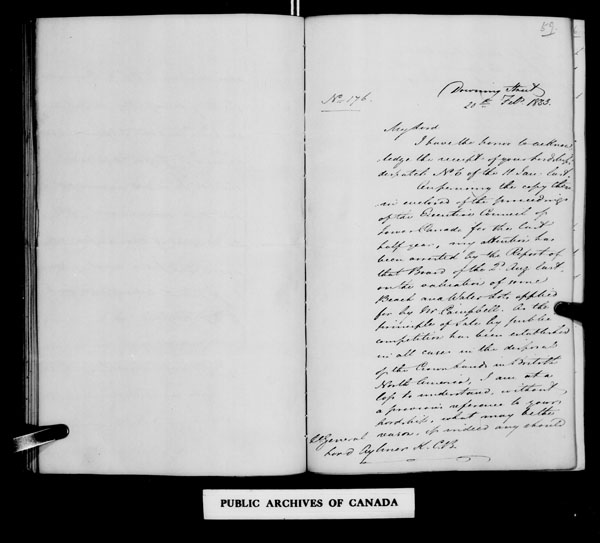 59
No 176.
Downing Street
20th Feby 1833.
My Lord
I have the honor to acknow
ledge the receipt of your Lordship's
dispatch No 6 of the 11 Jan. last.
On perusing the copy there
in enclosed of the proceedings
of the Executive Council of
Lower Canada for the last
half year, my attention has
been arrested by the Report of
that Board of the 2d Aug last,
on the valuation of some
Beach and Water lots applied
for by Mr Campbell. As the
principle of Sale by public
competition has been established
in all cases in the disposal
of the Crown lands in British
North America, I am at a
loss to understand, without
a previous reference to your
Lordship, what may be the
reason, if indeed any should
Lt General
Lord Aylmer K.C.B.
PUBLIC ARCHIVES OF CANADA